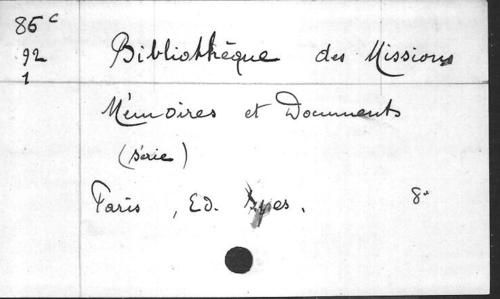 85 c
92
1
Bibliothèque des Missions
Mémoires et Documents
(série)
Paris, Ed. Spes. 8°